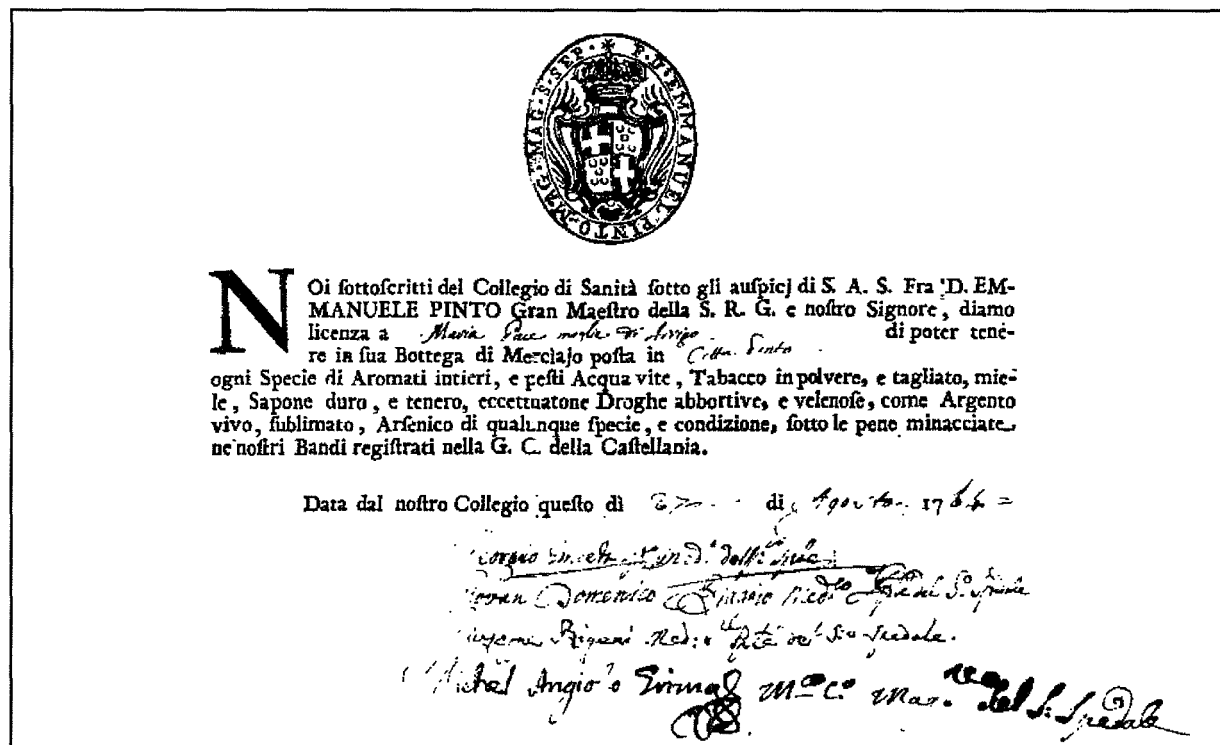 F. D. EMMANUEL PINTO MAG. MAG. S. SEP.
NOi ſottoſcritti del Collegio di Sanità ſotto gli auſpicj di S. A. S. Fra D. EM-
MANUELE PINTO Gran Maeſtro della S. R. G. e noſtro Signore, diamo
licenza a Maria Pace moglie di Arrigo di poter tene-
re in ſua Bottega di Merciajo poſta in Citta Pinto
ogni Specie di Aromati intieri, e peſti Acqua vite, Tabacco in polvere, e tagliato, mie-
le, Sapone duro, e tenero, eccettuatone Droghe abbortive, e velenoſe, come Argento
vivo, ſublimato, Arſenico di qualunque ſpecie, e condizione, ſotto le pene minacciate
ne noſtri Bandi regiſtrati nella G. C. della Caſtellania.
Data dal noſtro Collegio queſto dì di Agosto 1766
Domenico del Spedale
Med. del Spedale.
Michel Angiolo Grima del S. Spedale